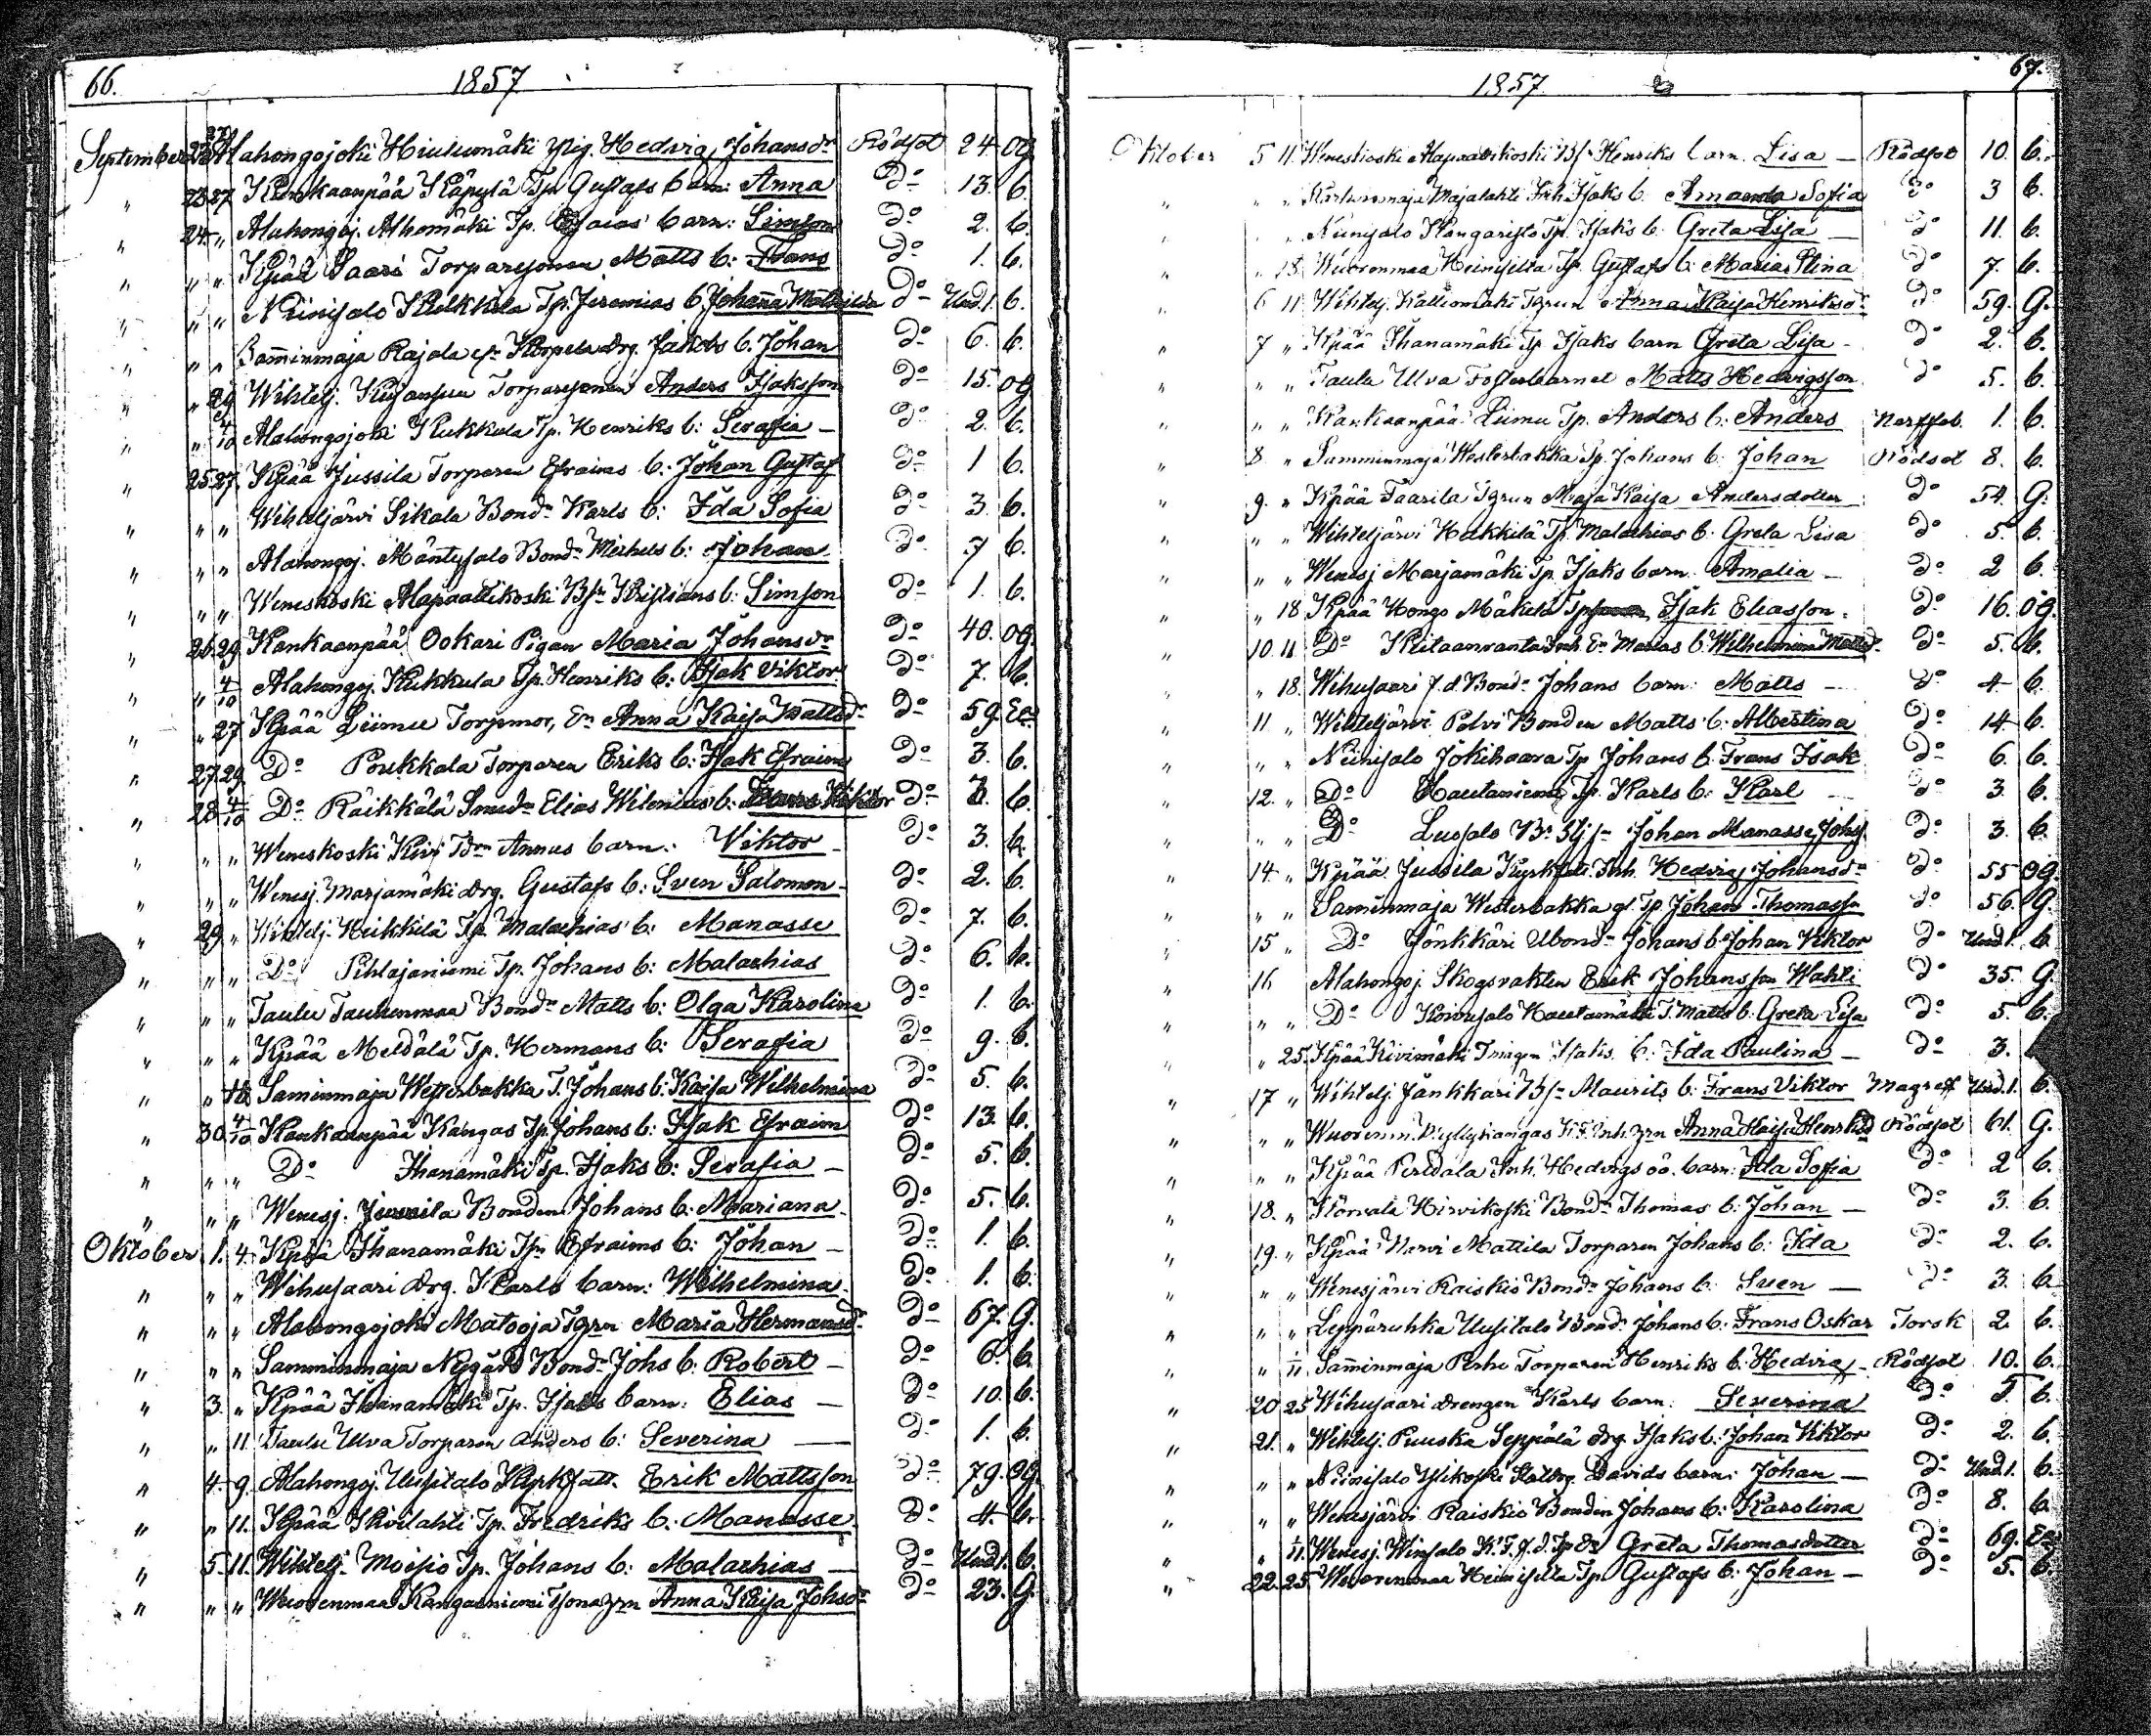 66. 1857
September 23 27 Alahongojoki Hiutumäki Pig. Hedvig Johansdr Rödsot 24 Og
" 23 27 Kankaanpää Käpylä Tp. Gustafs barn: Anna Do 13. b.
" 24 " Alahongoj. Alhomäki Tp. Esaias barn: Simson Do 2. b.
" " " Kpää Saari Torparesonen Matts b: Frans Do 1. b.
" " " Niinisalo Kukkula Tp. Jeremias b. Johanna Mathilda Do Und. 1. b.
" " " Samminmaja Rajala Korpela Drg. Jakobs b. Johan Do 6. b.
" " 29 Wihtelj. Kujansuu Torparesonen Anders Isaksson Do 15. og
" " 4/10 Alahongojoki Kukkula Tp. Henriks b: Serafia – Do 2. b.
" 25 27 Kpää Jussila Torparen Efraims b: Johan Gustaf Do 1 b.
" " " Wihteljärvi Sikala Bondn Karls b: Ida Sofia Do 3. b.
" " " Alahongoj. Mäntysalo Bondn Michels b: Johan Do 7 b.
" " " Weneskoski Alapaattikoski Bsn Kristians b: Simson Do 1. b.
" 26 29 Kankaanpää Ookari Pigan Maria Johansdr Do 40. Og.
" " 4/10 Alahongoj. Kukkula Tp. Henriks b: Isak Viktor Do 7. b.
" " 27 Kpää Liimu Torpmor, En Anna Kaisa Mattsdr Do 59 En
" 27 29 Do Poukkala Torparen Eriks b: Isak Efraim Do 3. b.
" 28 4/10 Do Räikkälä Smedn Elias Wilenius b: Frans Viktor Do b.
" " " Weneskoski Kivi Annus barn: Viktor Do 3. b.
" " " Wenesj. Marjamäki Drg. Gustafs b: Sven Salomon – Do 2. b.
" 29 " Wihtelj. Heikkilä Tp. Malachias b: Manasse Do 7. b.
" " " Do Pihlajaniemi Tp. Johans b: Malachias Do 6. b.
" " " Taulu Taulunmaa Bondn Matts b: Olga Karolina Do 1. b.
" " " Kpää Metsälä Tp. Hermans b: Serafia Do 9. b.
" " Saminmaja Westerbakka T. Johans b: Kaisa Wilhelmina Do 5. b.
" 30 4/10 Kankaanpää Kangas Tp. Johans b: Isak Efraim Do 13. b.
" " " Do Ihanamäki Tp. Isaks b: Serafia – Do 5. b.
" " " Wenesj. Bonden Johans b: Mariana – Do 5. b.
Oktober 1. 4. Kpää Ihanamäki Tpn Efraims b: Johan – Do 1. b.
" " " Wihusaari Drg. Karls barn: Wilhelmina – Do 1. b.
" " " Alahongojoki Matooja Tgrn Maria Hermansdr Do 67. G.
" " " Samminmaja Nygård Bondn Johs b: Robert – Do 6. b.
" 3. " Kpää Ihanamäki Tp. Isaks barn: Elias – Do 10. b.
" " 11. Taulu Ulva Torparen Anders b: Severina – Do 1. b.
" 4. 9. Alahongoj. Uusitalo Kyrkfatt. Erik Mattsson Do 79. og.
" " 11. Kpää Koilahti Tp. Fredriks b: Manasse. Do 4. b.
" 5. 11. Wihtelj. Moisio Tp. Johans b: Malachias – Do Und. 1. b.
" " " Wuorenmaa Kangasniemi Anna Kaisa Johsdr Do 23. G.
67.
1857.
Oktober 5 11. Weneskoski Alapaattikoski Bsn Henriks barn. Lisa – Rödsot 10. b.
" " " Majalahti Inh. Isaks b. Amanda Sofia Do 3 b.
" " " Niinisalo Kangaristo Tp. Isaks b. Greta Lisa – Do 11. b.
" " 18. Wuorenmaa Heinisilta Tp. Gustafs b: Maria Stina Do 7. b.
" 6 11 Wihtelj. Kalliomäki Tgrun Anna Kaisa Henriksdr Do 59. G.
" 7 " Kpää Ihanamäki Tp. Isaks barn Greta Lisa – Do 2. b.
" " " Taula Ulva Fosterbarnet Matts Hedvigsson Do 5. b.
" " " Kankaanpää Liimu Tp. Anders b: Anders Nerffeb. 1. b.
" 8 " Samminmaja Westerbakka Tp. Johans b: Johan Rödsot 8. b.
" 9. " Kpää Taarila Tgrun Maja Kaisa Andersdotter Do 54. G.
" " " Wihteljärvi Heikkilä Tp. Malachias b. Greta Lisa Do 5. b.
" " " Wenesj Marjamäki Tp. Isaks barn. Amalia – Do 2 b.
" " 18 Kpää Hongo Mäkelä Isak Eliasson. Do 16. og.
" 10 11 Do Kiitaanranta Inh. En Marias b. Wilhelmina Mattsd. Do 5. b.
" " 18. Wihusaari f.d. Bondn Johans barn: Matts – Do 4 b.
" 11 " Wihteljärvi Polvi Bonden Matts b. Albertina Do 14 b.
" " " Niinisalo Jokihaara Tp Johans b. Frans Isak Do 6. b.
" 12. " Do Hautaniemi Tp. Karls b: Karl – Do 3. b.
" " " Do Luosalo Johan Manasse Johs. Do 3. b.
" 14 " Kpää Jussila Kyrkfatt. Inh. Hedvig Johansdr Do 55 og.
" " " Saminmaja Westerbakka gl. Tp. Johan Thomass. Do 56. G.
" 15 " Do Jönkkäri Ubondn Johans b: Johan Viktor Do Und 1. b.
" 16 Alahongoj. Skogsvakten Erik Johansson Wahti Do 35. G.
" " " Do Koivusalo Hautamäki T. Matts b. Greta Lisa Do 5. b.
" " 25. Kpää Kivimäki Isaks b: Ida Paulina – Do 3.
" 17 " Wihtelj. Jänkkäri Bsn Maurits b: Frans Viktor Magreff Und. 1. b.
" " " Wuorenm. Kyllykangas Inh. Anna Kaisa Henrsd. Rödsot 61. G.
" " " Kpää Perdala Inh. Hedvigs oä. barn: Ida Sofia Do 2 b.
" 18. " Korvala Hirvikoski Bondn Thomas b: Johan – Do 3. b.
" 19. " Kpää Narvi Mattila Torparen Johans b: Ida Do 2. b.
" " " Wenesjärvi Raiskio Bondn Johans b. Sven – Do 3. b.
" " " Leppäruhka Uusitalo Bond. Johans b: Frans Oskar Torsk 2 b.
" " 1/11 Saminmaja Perho Torparen Henriks b. Hedvig – Rödsot 10. b.
" 20 25 Wihusaari Drengen Karls barn. Severina Do b.
" 21. " Wihtelj. Puuska Seppälä Drg Isaks b: Johan Viktor Do 2. b.
" " " Niinisalo Ylikoski Davids barn: Johan – Do Und. 1. b.
" " " Wenesjärvi Raiskio Bonden Johans b: Karolina Do 8. b.
" " 1/11. Wenesj. Winsalo K.F. f.d. Tp En Greta Thomasdotter Do 69. En
" 22. 25. Wuorenmaa Heinisilta Tp. Gustafs b: Johan – Do 5. b.